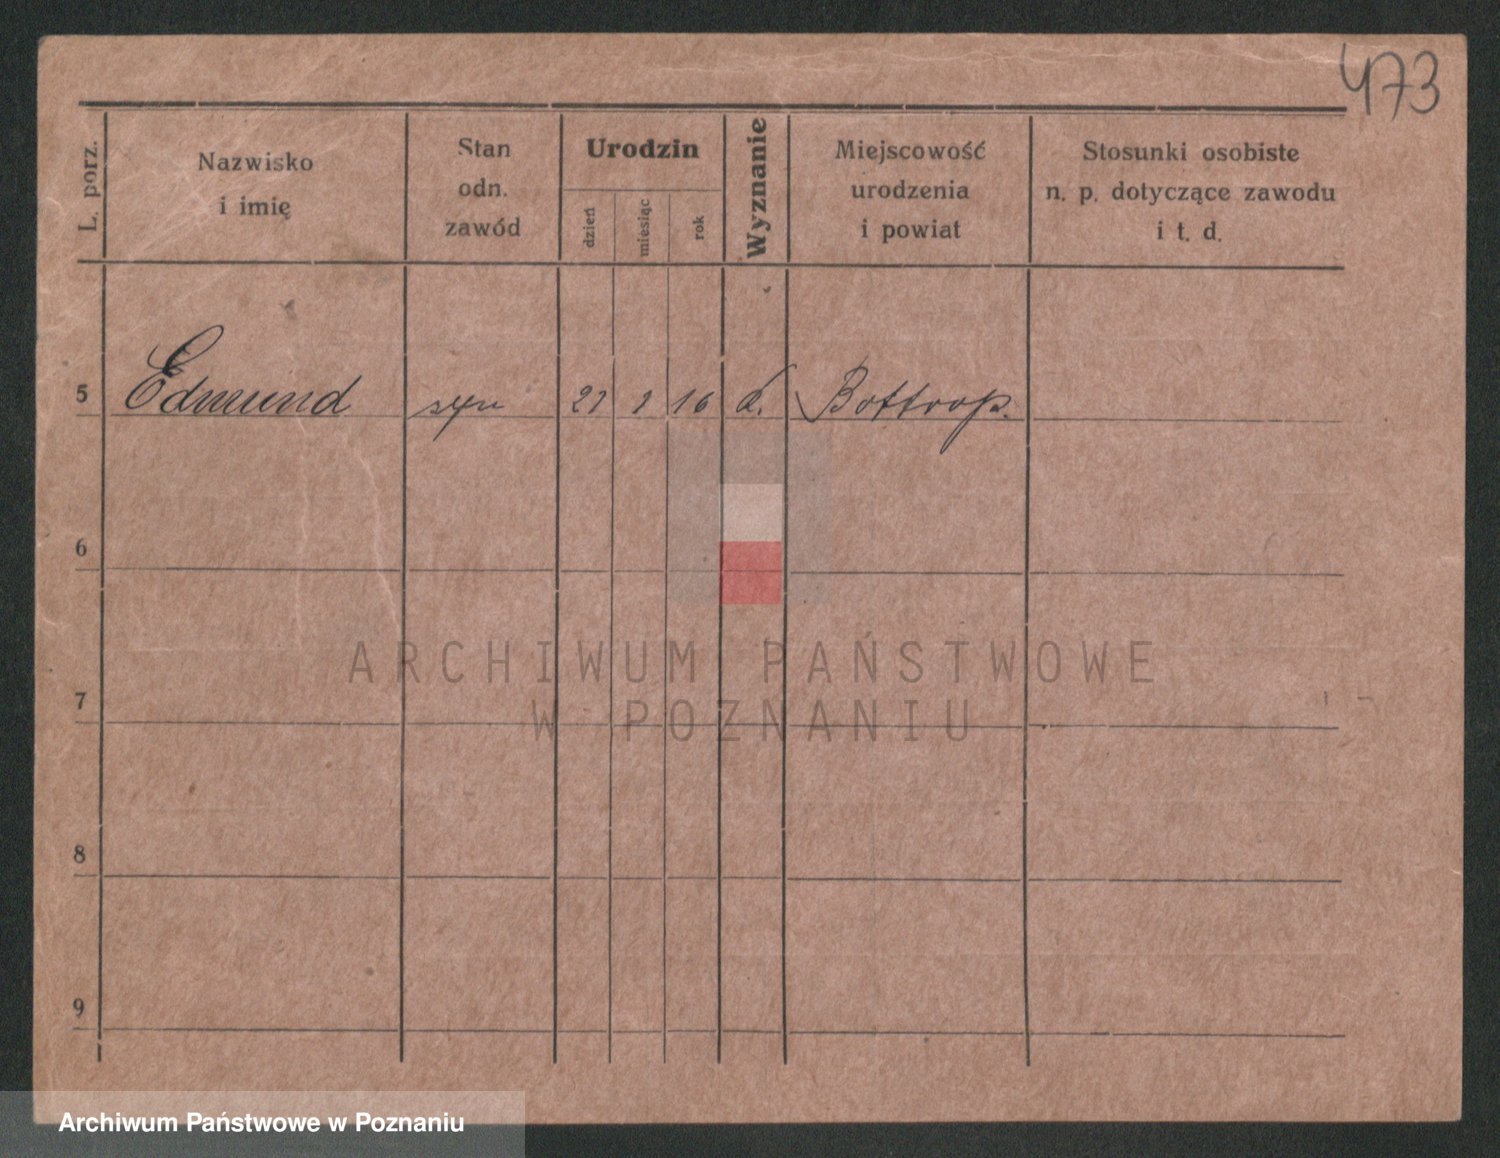 473
L. porz.
Nazwisko
i imię
Stan
odn.
zawód
Urodzin
dzień
miesiąc
rok
Wyznanie
Miejscowość
urodzenia
i powiat
Stosunki osobiste
n. p. dotyczące zawodu
i t. d.
5 Edmund syn 16 Bottrop.
6
ARCHIWUM PAŃSTWOWE
7
W POZNANIU
8
9
Archiwum Państwowe w Poznaniu